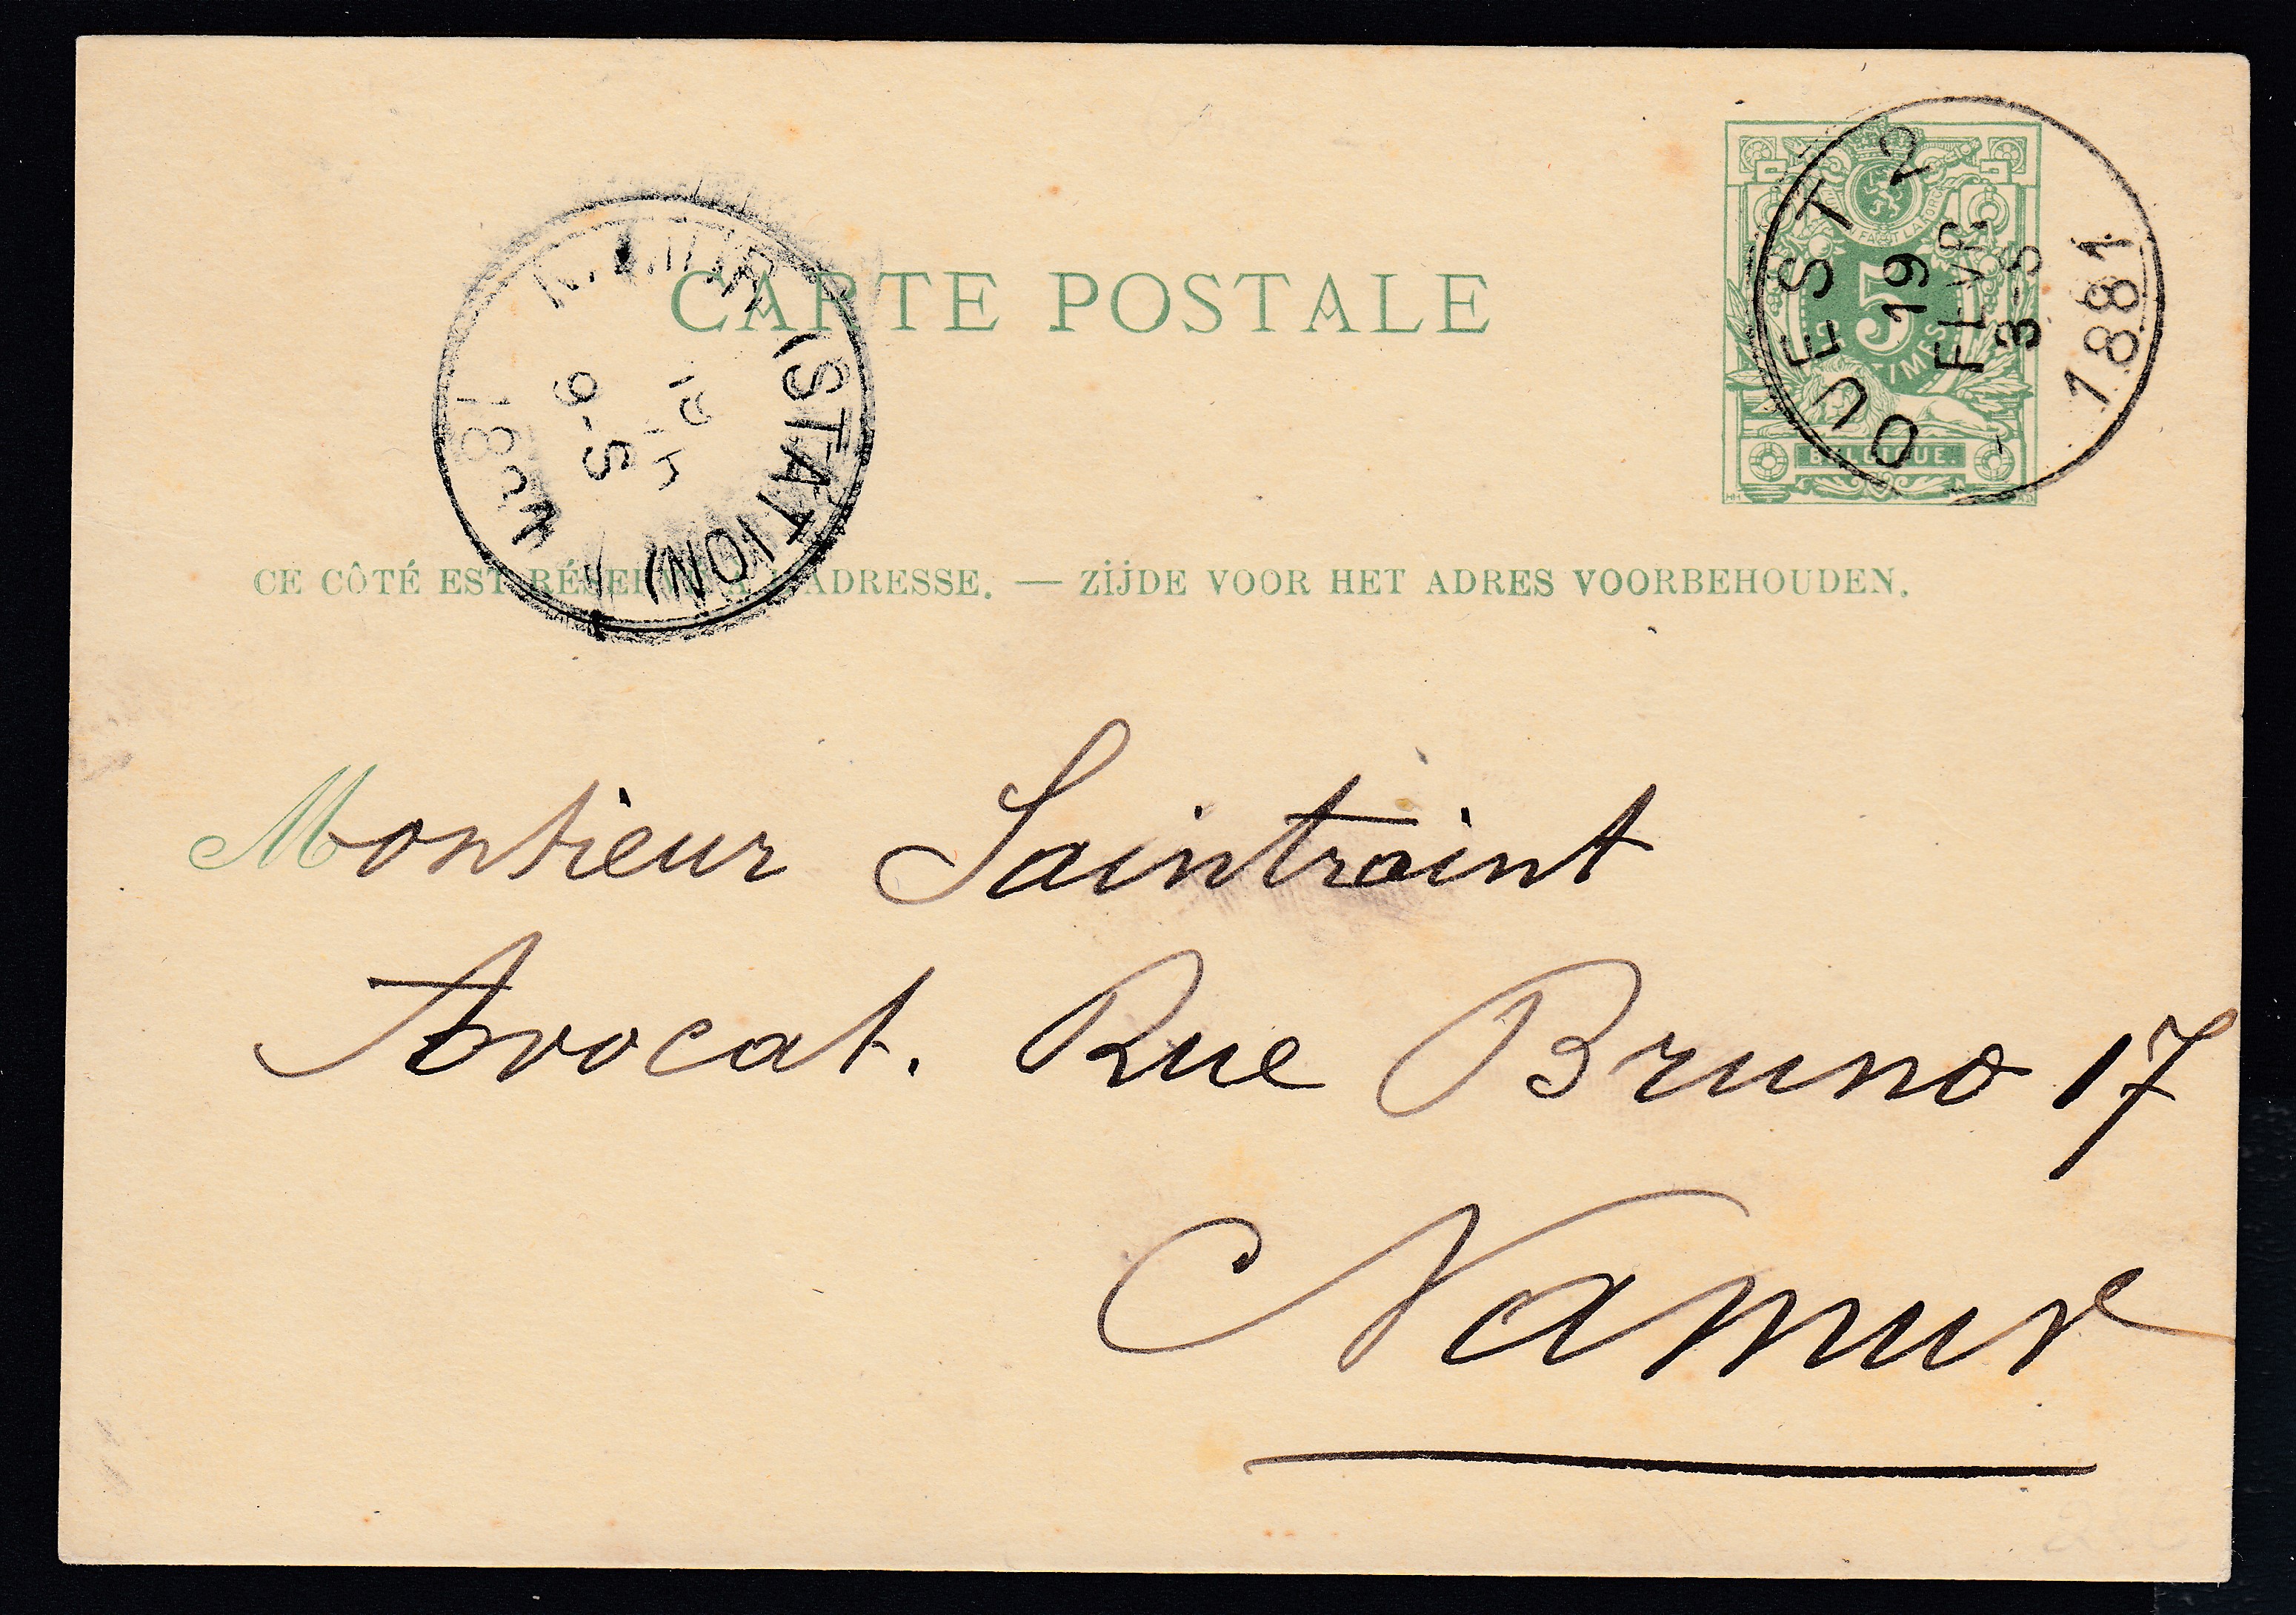 CARTE POSTALE
5
BELGIQUE.
OUEST 2
19
FEVR
3-S
1881
(STATION)
6-S
CE CÔTÉ EST RÉSERVÉ A L'ADRESSE. — ZIJDE VOOR HET ADRES VOORBEHOUDEN.
Monsieur Saintraint
Avocat. Rue Bruno 17
Namur